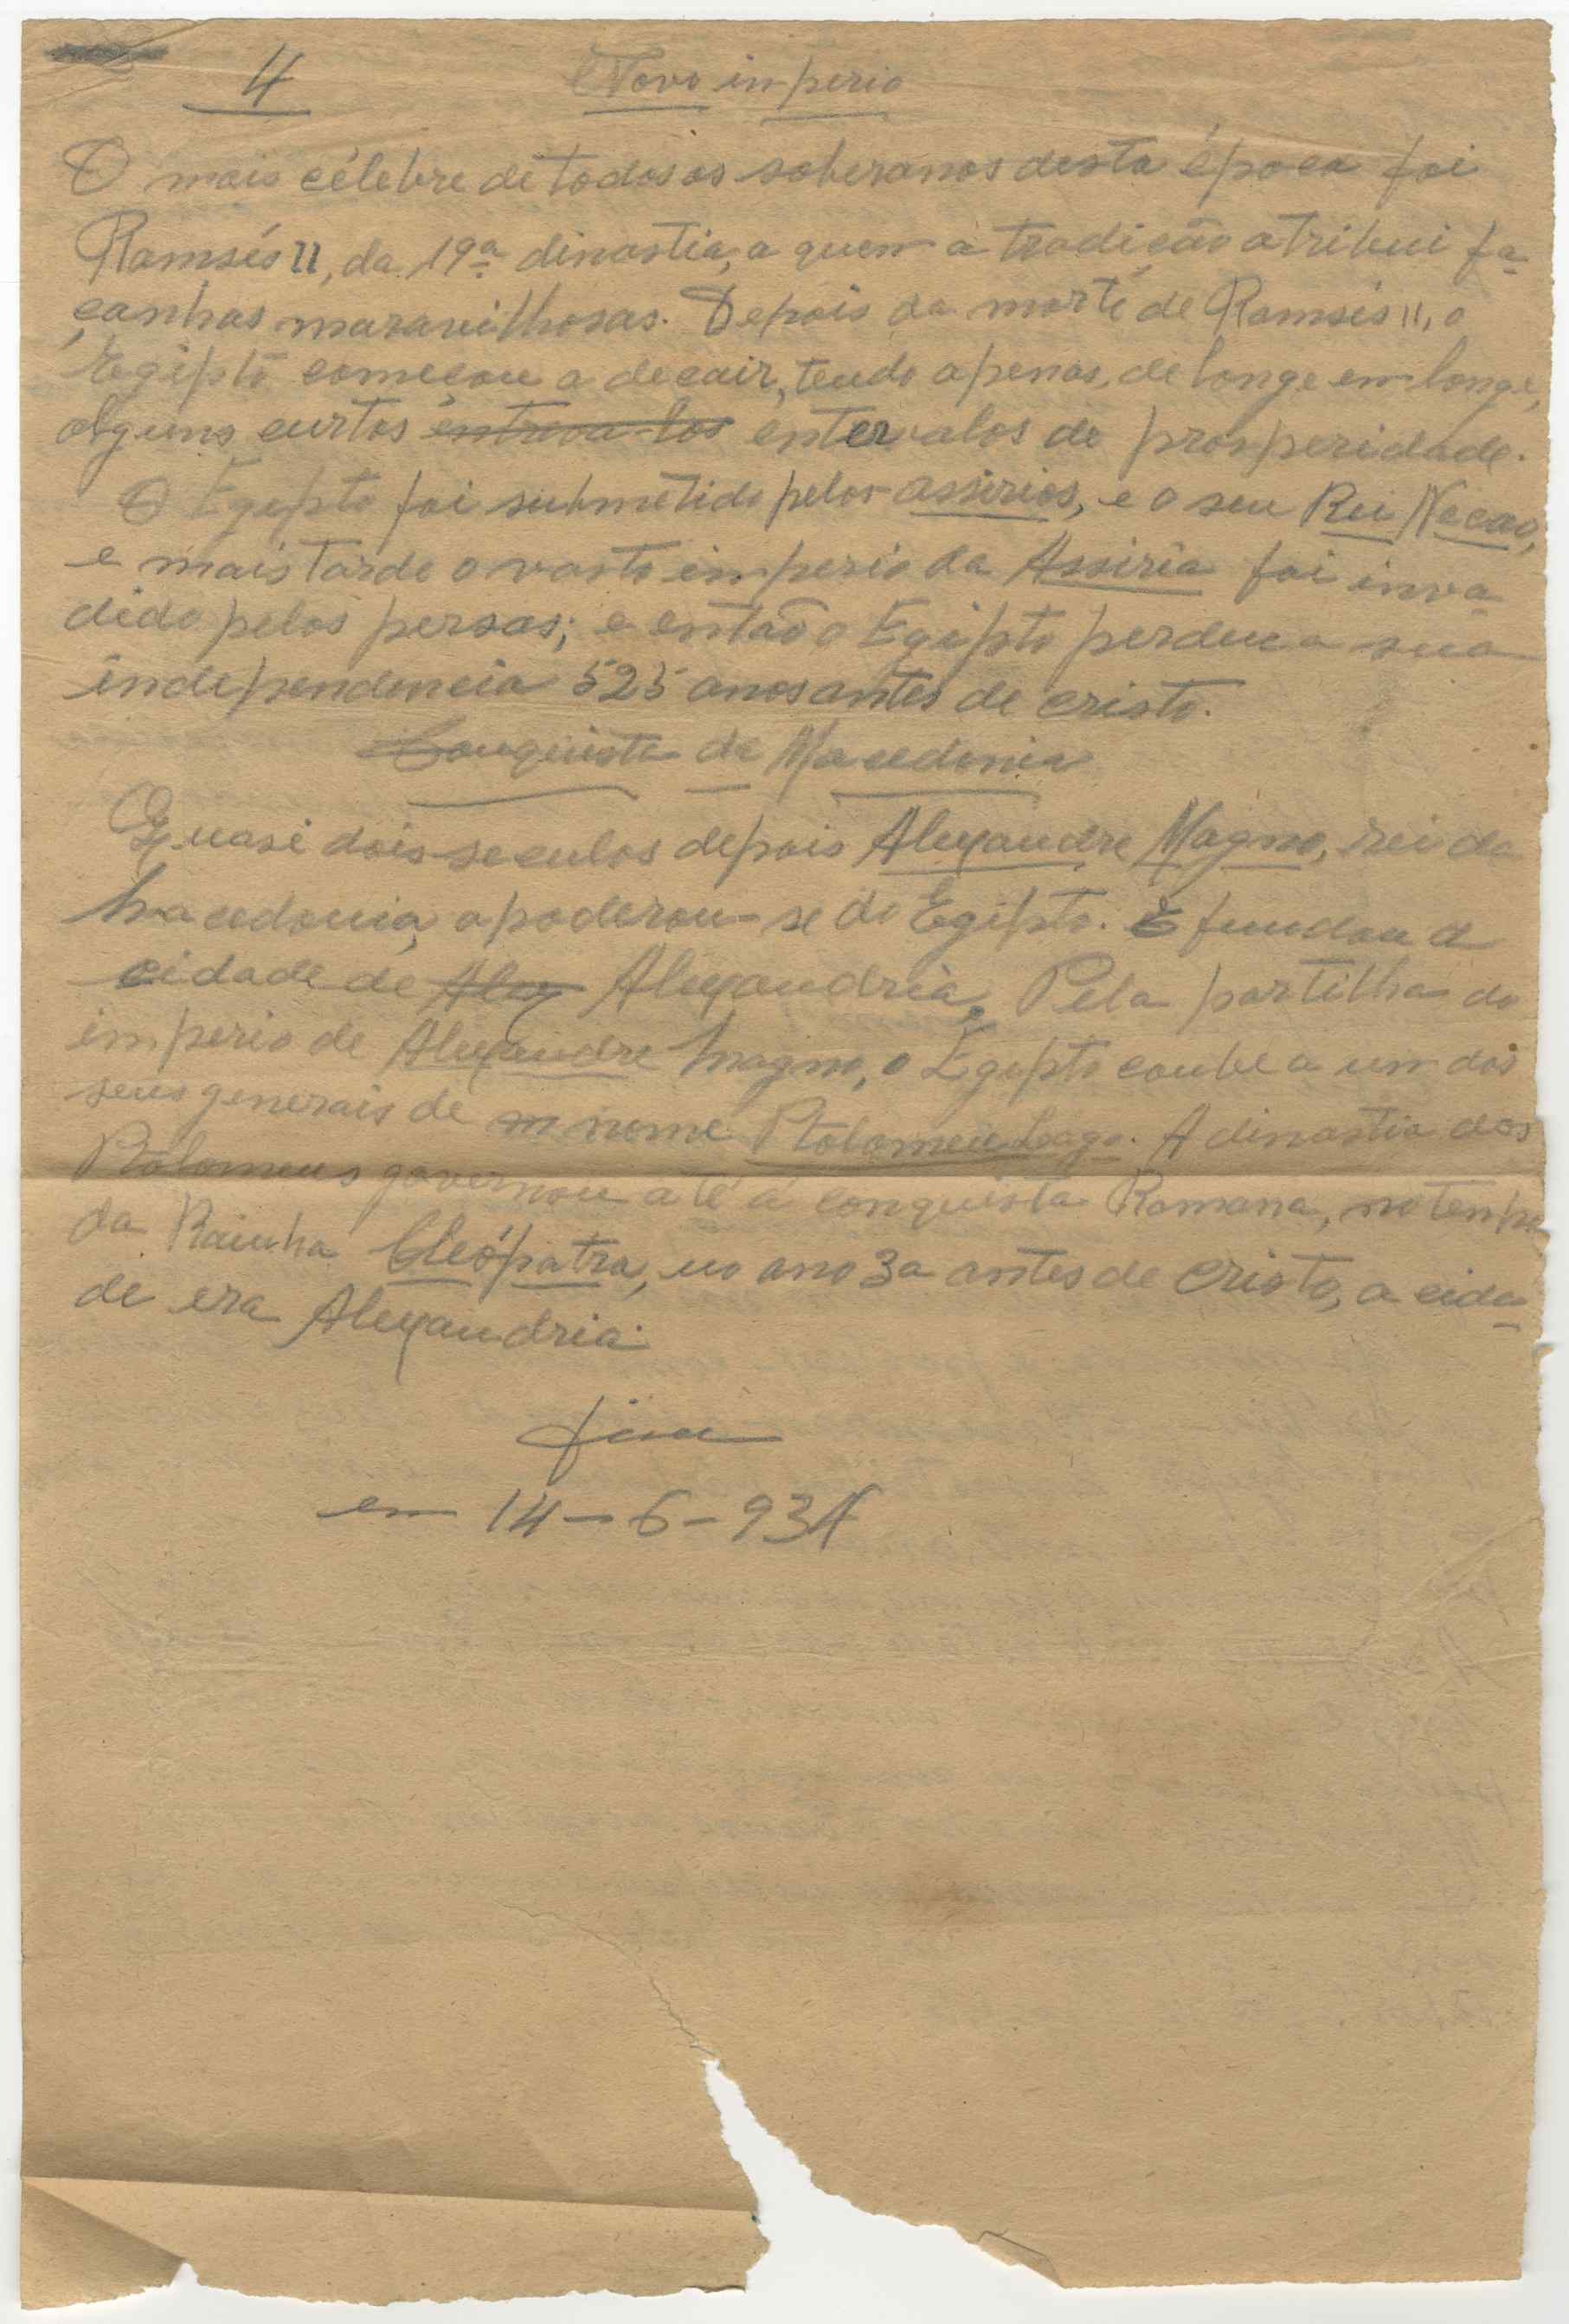 4 Novo imperio
O mais célebre de todos os soberanos desta época foi
Ramsés II, da 19ª dinastia, a quem a tradicão atribui fa-
çanhas maravilhosas. Depois da morte de Ramsés II, o
Egipto começou a decair, tendo apenas, de longe em longe,
alguns curtos entreva-los entervalos de prosperidade.
O Egipto foi submetido pelos assirios, e o seu Rei Necao,
e mais tarde o vasto imperio da Assiria foi inva
dido pelos persas; e então o Egipto perdeu a sua
independencia 525 anos antes de cristo.
Conquista da Macedonia
Quasi dois seculos depois Alexandre Magno, rei da
Macedonia, apoderou-se do Egipto. E fundou a
cidade de Alex Alexandria. Pela partilha do
imperio de Alexandre Magno, o Egipto coube a um dos
seus generais de m nome Ptolomeu Lago. A dinastia dos
Ptolomeus governou até á conquista Romana, no tempo
da Rainha Cleópatra, no ano 3a antes de cristo, a cida-
de era Alexandria.
fim
em 14-6-934